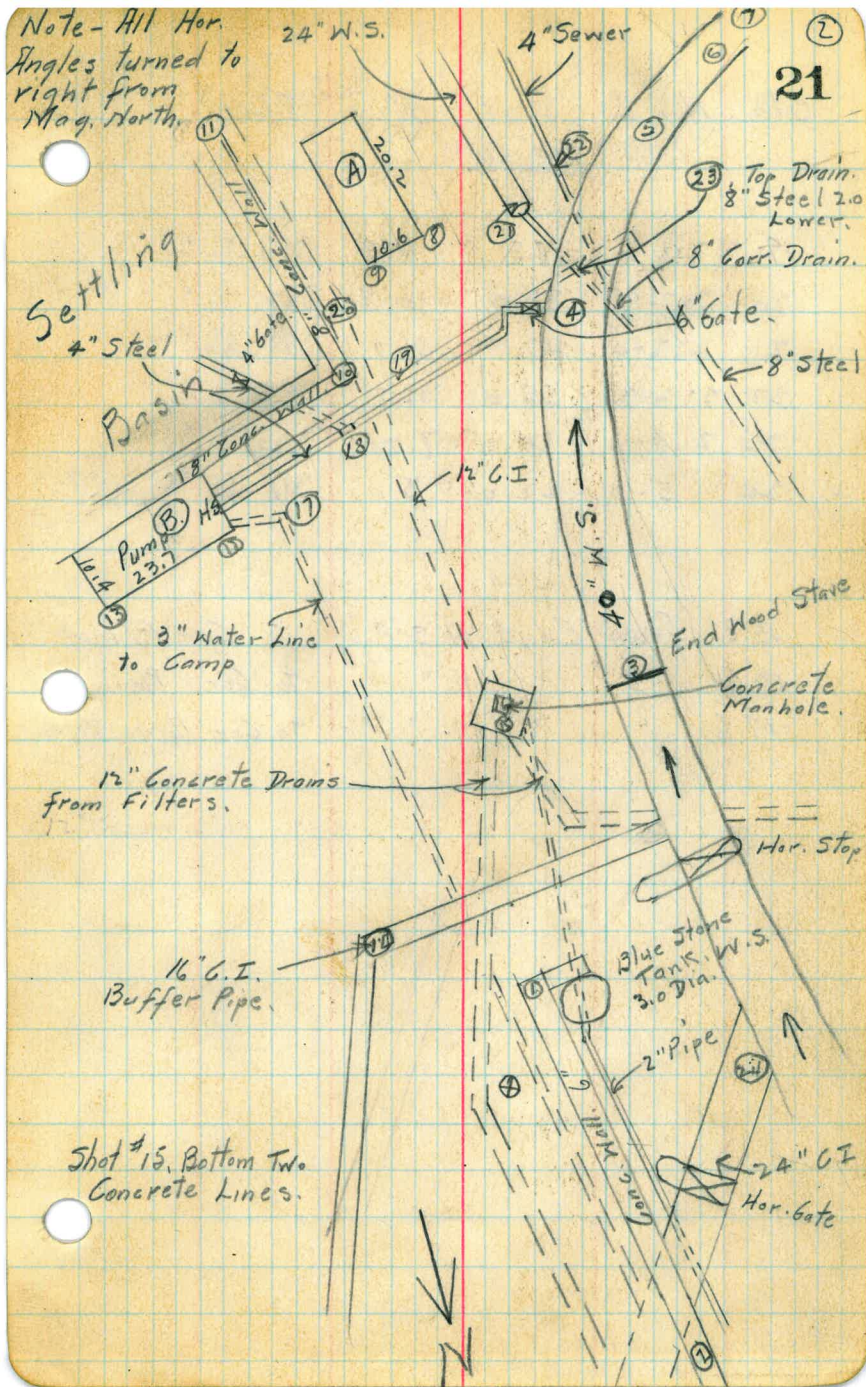 Note - All Hor.
Angles turned to
right from
Mag. North.
24" W.S.
4" Sewer
7
2
6
21
5
11
A
20.2
10.6
8
9
22
23
Top Drain.
8" Steel 2.0
Lower.
21
8" Corr. Drain.
8" Conc. Wall
Settling
Basin
4" Steel
4" Gate
20
19
10
4
6" Gate.
8" Steel
18" Conc. Wall
18
12" C.I.
B.
Pump
23.7
10.4
17
13
40" W.S.
3" Water Line
to Camp
3
End Wood Stave
Concrete
Manhole.
12" Concrete Drains
from Filters.
Hor. Stop
14
16" C.I.
Buffer Pipe.
1
Blue Stone
Tank. W.S.
3.0 Dia.
2" Pipe
24
6" Conc. Wall.
24" C I
Hor. Gate
Shot #15, Bottom Two
Concrete Lines.
N
2